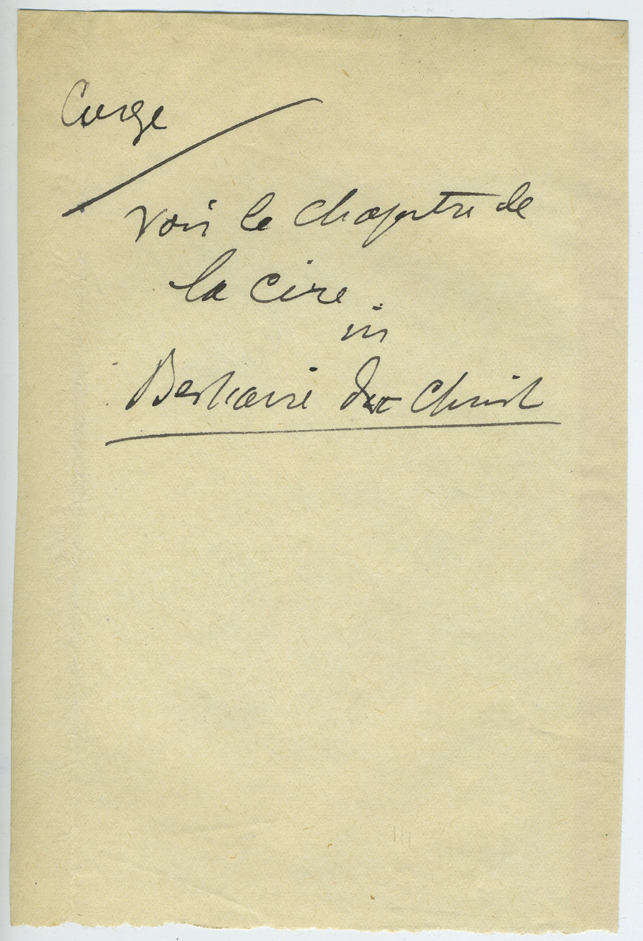 Cierge
voir le chapitre de
la cire.
in
Bestiaire du Christ